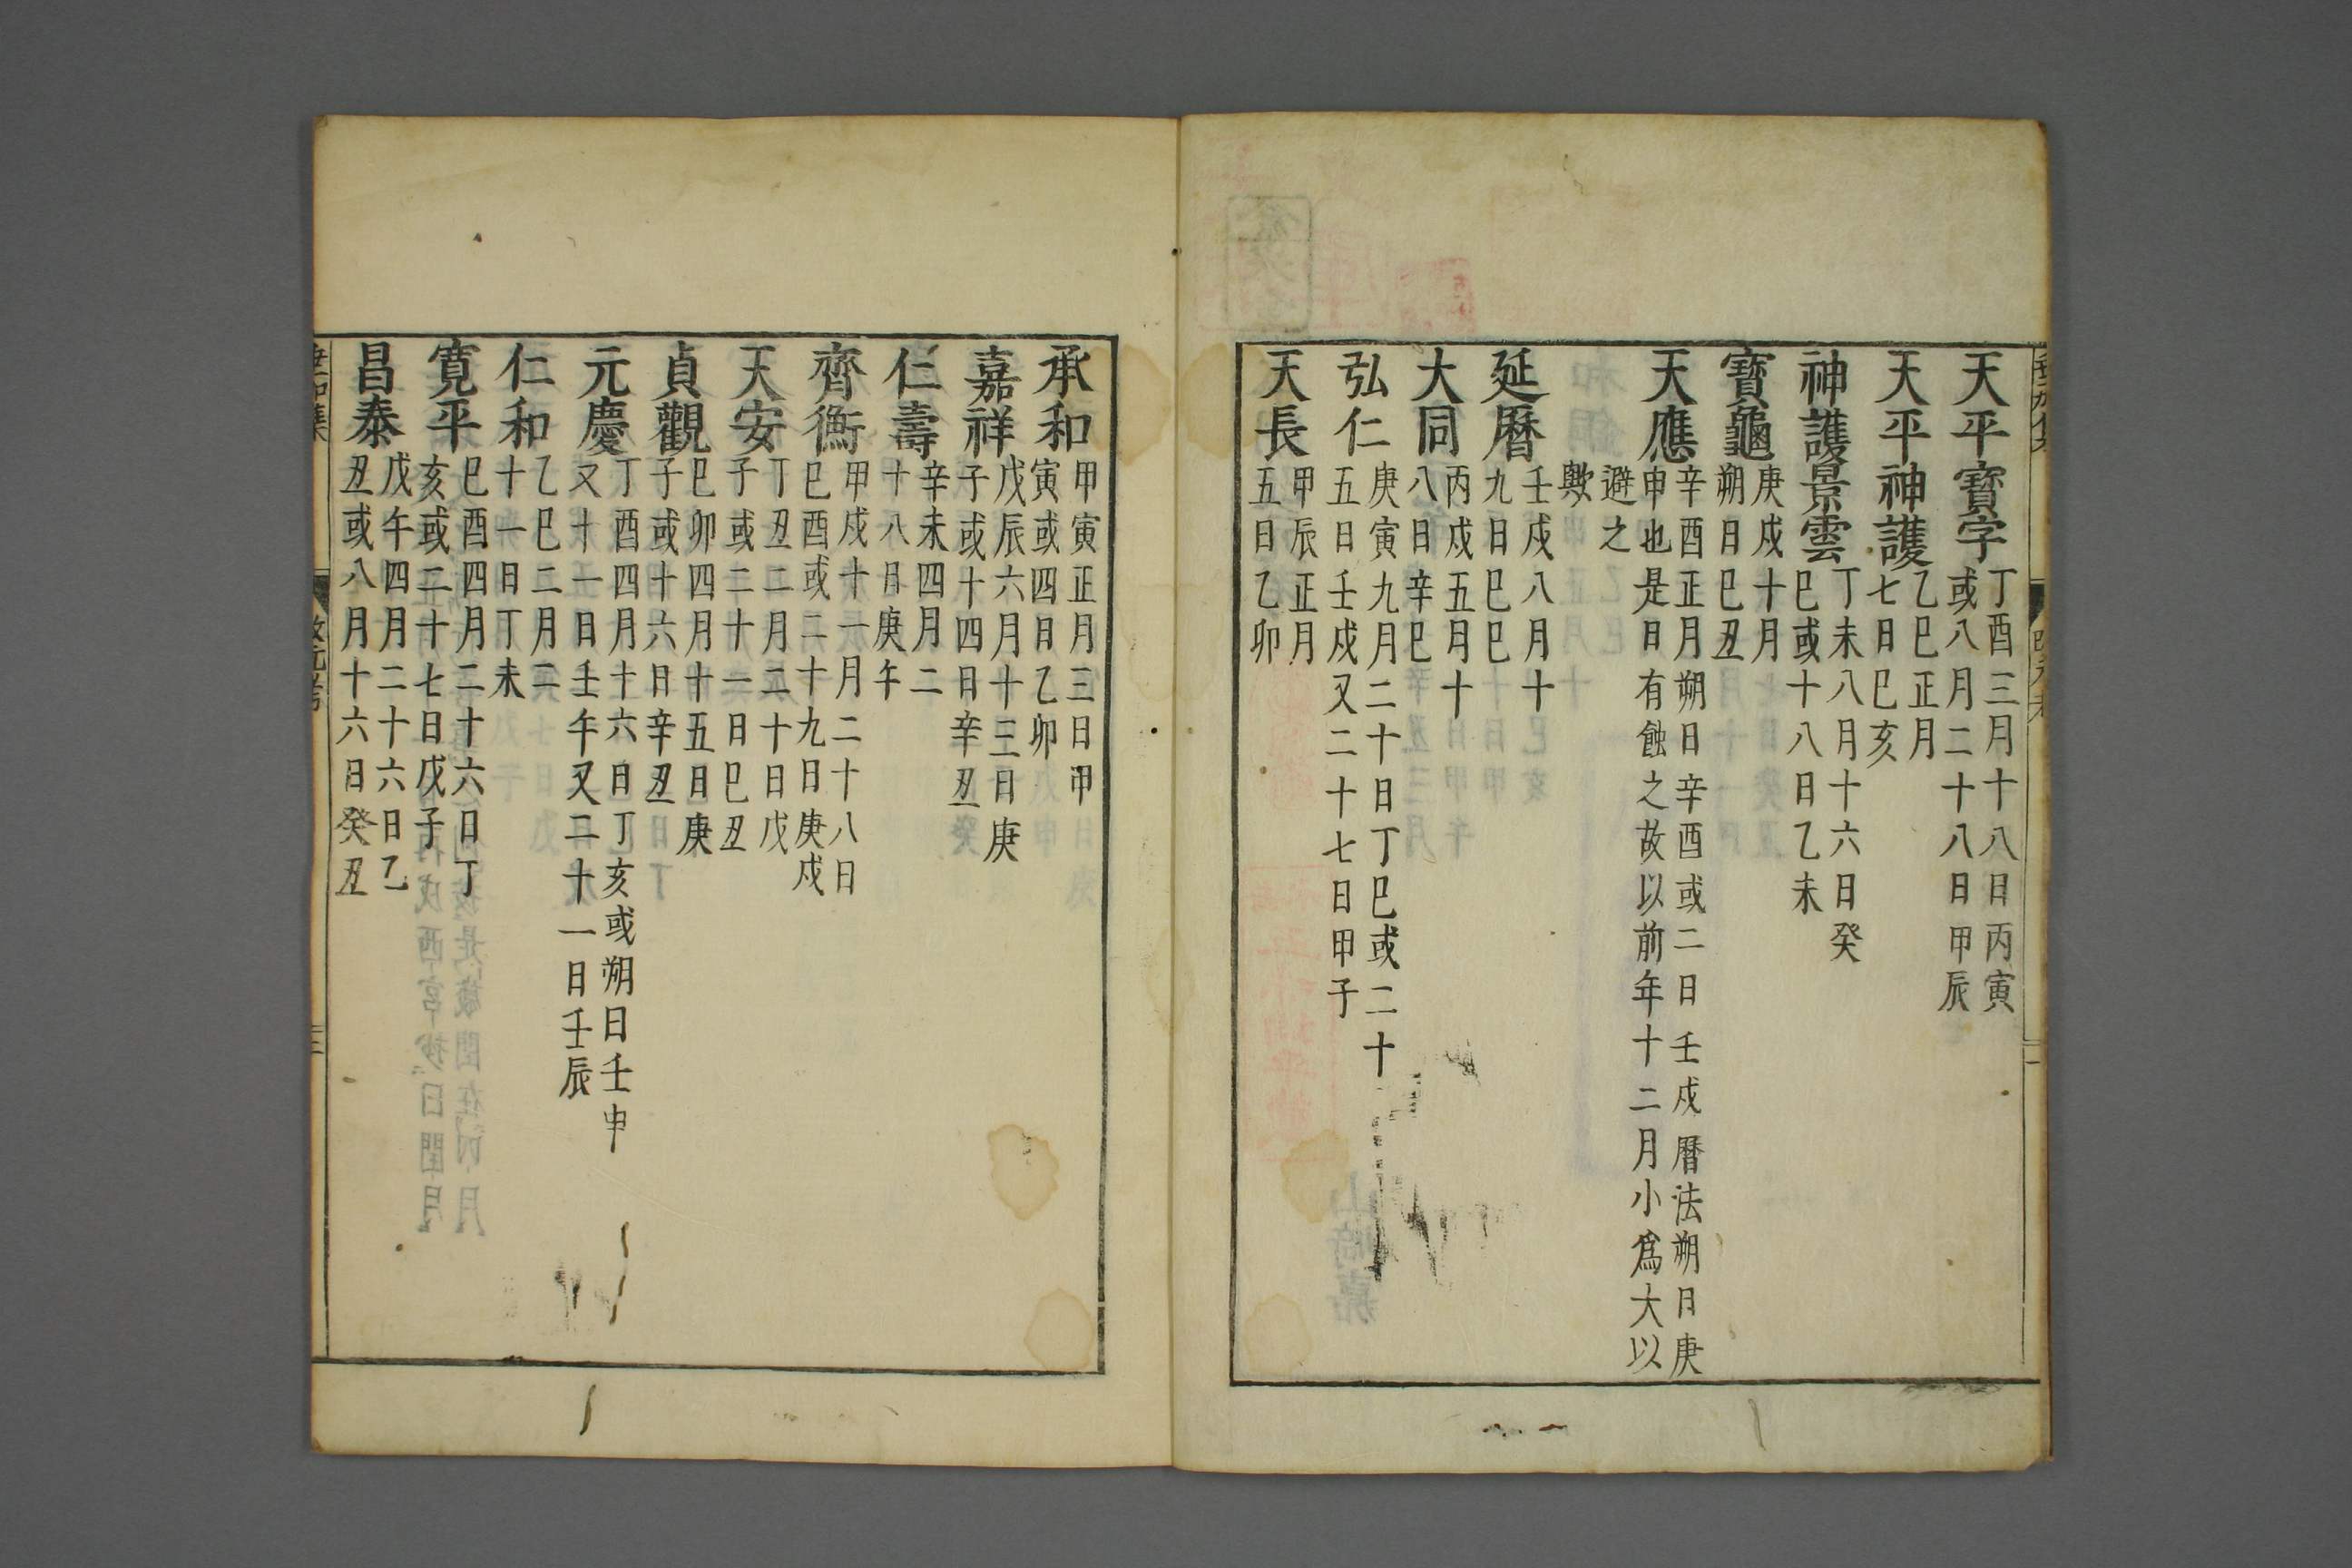 天平寶字
丁酉三月十八日丙寅
或八月二十八日甲辰
天平神護
乙巳正月
七日巳亥
神護景雲
丁未八月十六日癸
巳或十八日乙未
寶龜
庚戍十月
朔日巳丑
天應
辛酉正月朔日辛酉或二日壬戍曆法朔日庚
申也是日有蝕之故以前年十二月小爲大以
避之
歟
延曆
壬戍八月十
九日巳巳
大同
丙戍五月十
八日辛巳
弘仁
庚寅九月二十日丁巳或二十
五日壬戍又二十七日甲子
天長
甲辰正月
五日乙卯
承和
甲寅正月三日甲
寅或四日乙卯
嘉祥
戊辰六月十三日庚
子或十四日辛丑
仁壽
辛未四月二
十八日庚午
齊衡
甲戍十一月二十八日
巳酉或二十九日庚戍
天安
丁丑二月二十日戊
子或二十一日巳丑
貞觀
巳卯四月十五日庚
子或十六日辛丑
元慶
丁酉四月十六日丁亥或朔日壬申
又十一日壬午又二十一日壬辰
仁和
乙巳二月二
十一日丁未
寛平
巳酉四月二十六日丁
亥或二十七日戊子
昌泰
戊午四月二十六日乙
丑或八月十六日癸丑